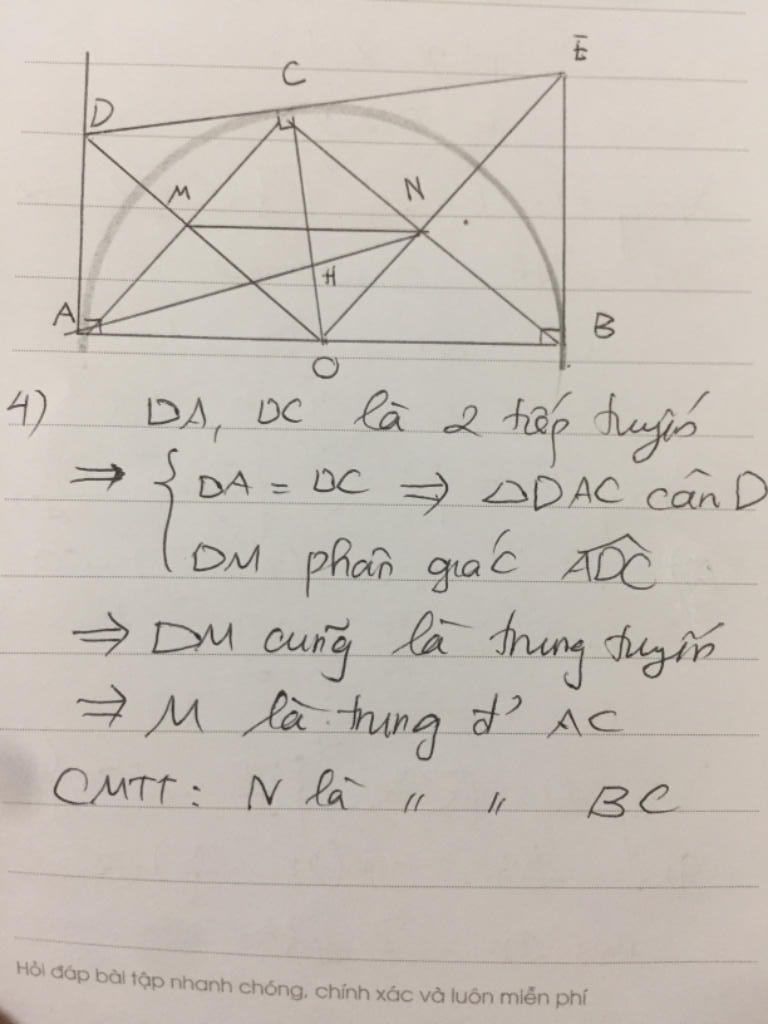 E
C
D
M
N
H
A
B
O
4) DA, DC là 2 tiếp tuyến
⇒ { DA = DC ⇒ ΔDAC cân D
DM phân giác ADC
⇒ DM cũng là trung tuyến
⇒ M là trung đ' AC
CMTT: N là " " BC
Hỏi đáp bài tập nhanh chóng, chính xác và luôn miễn phí